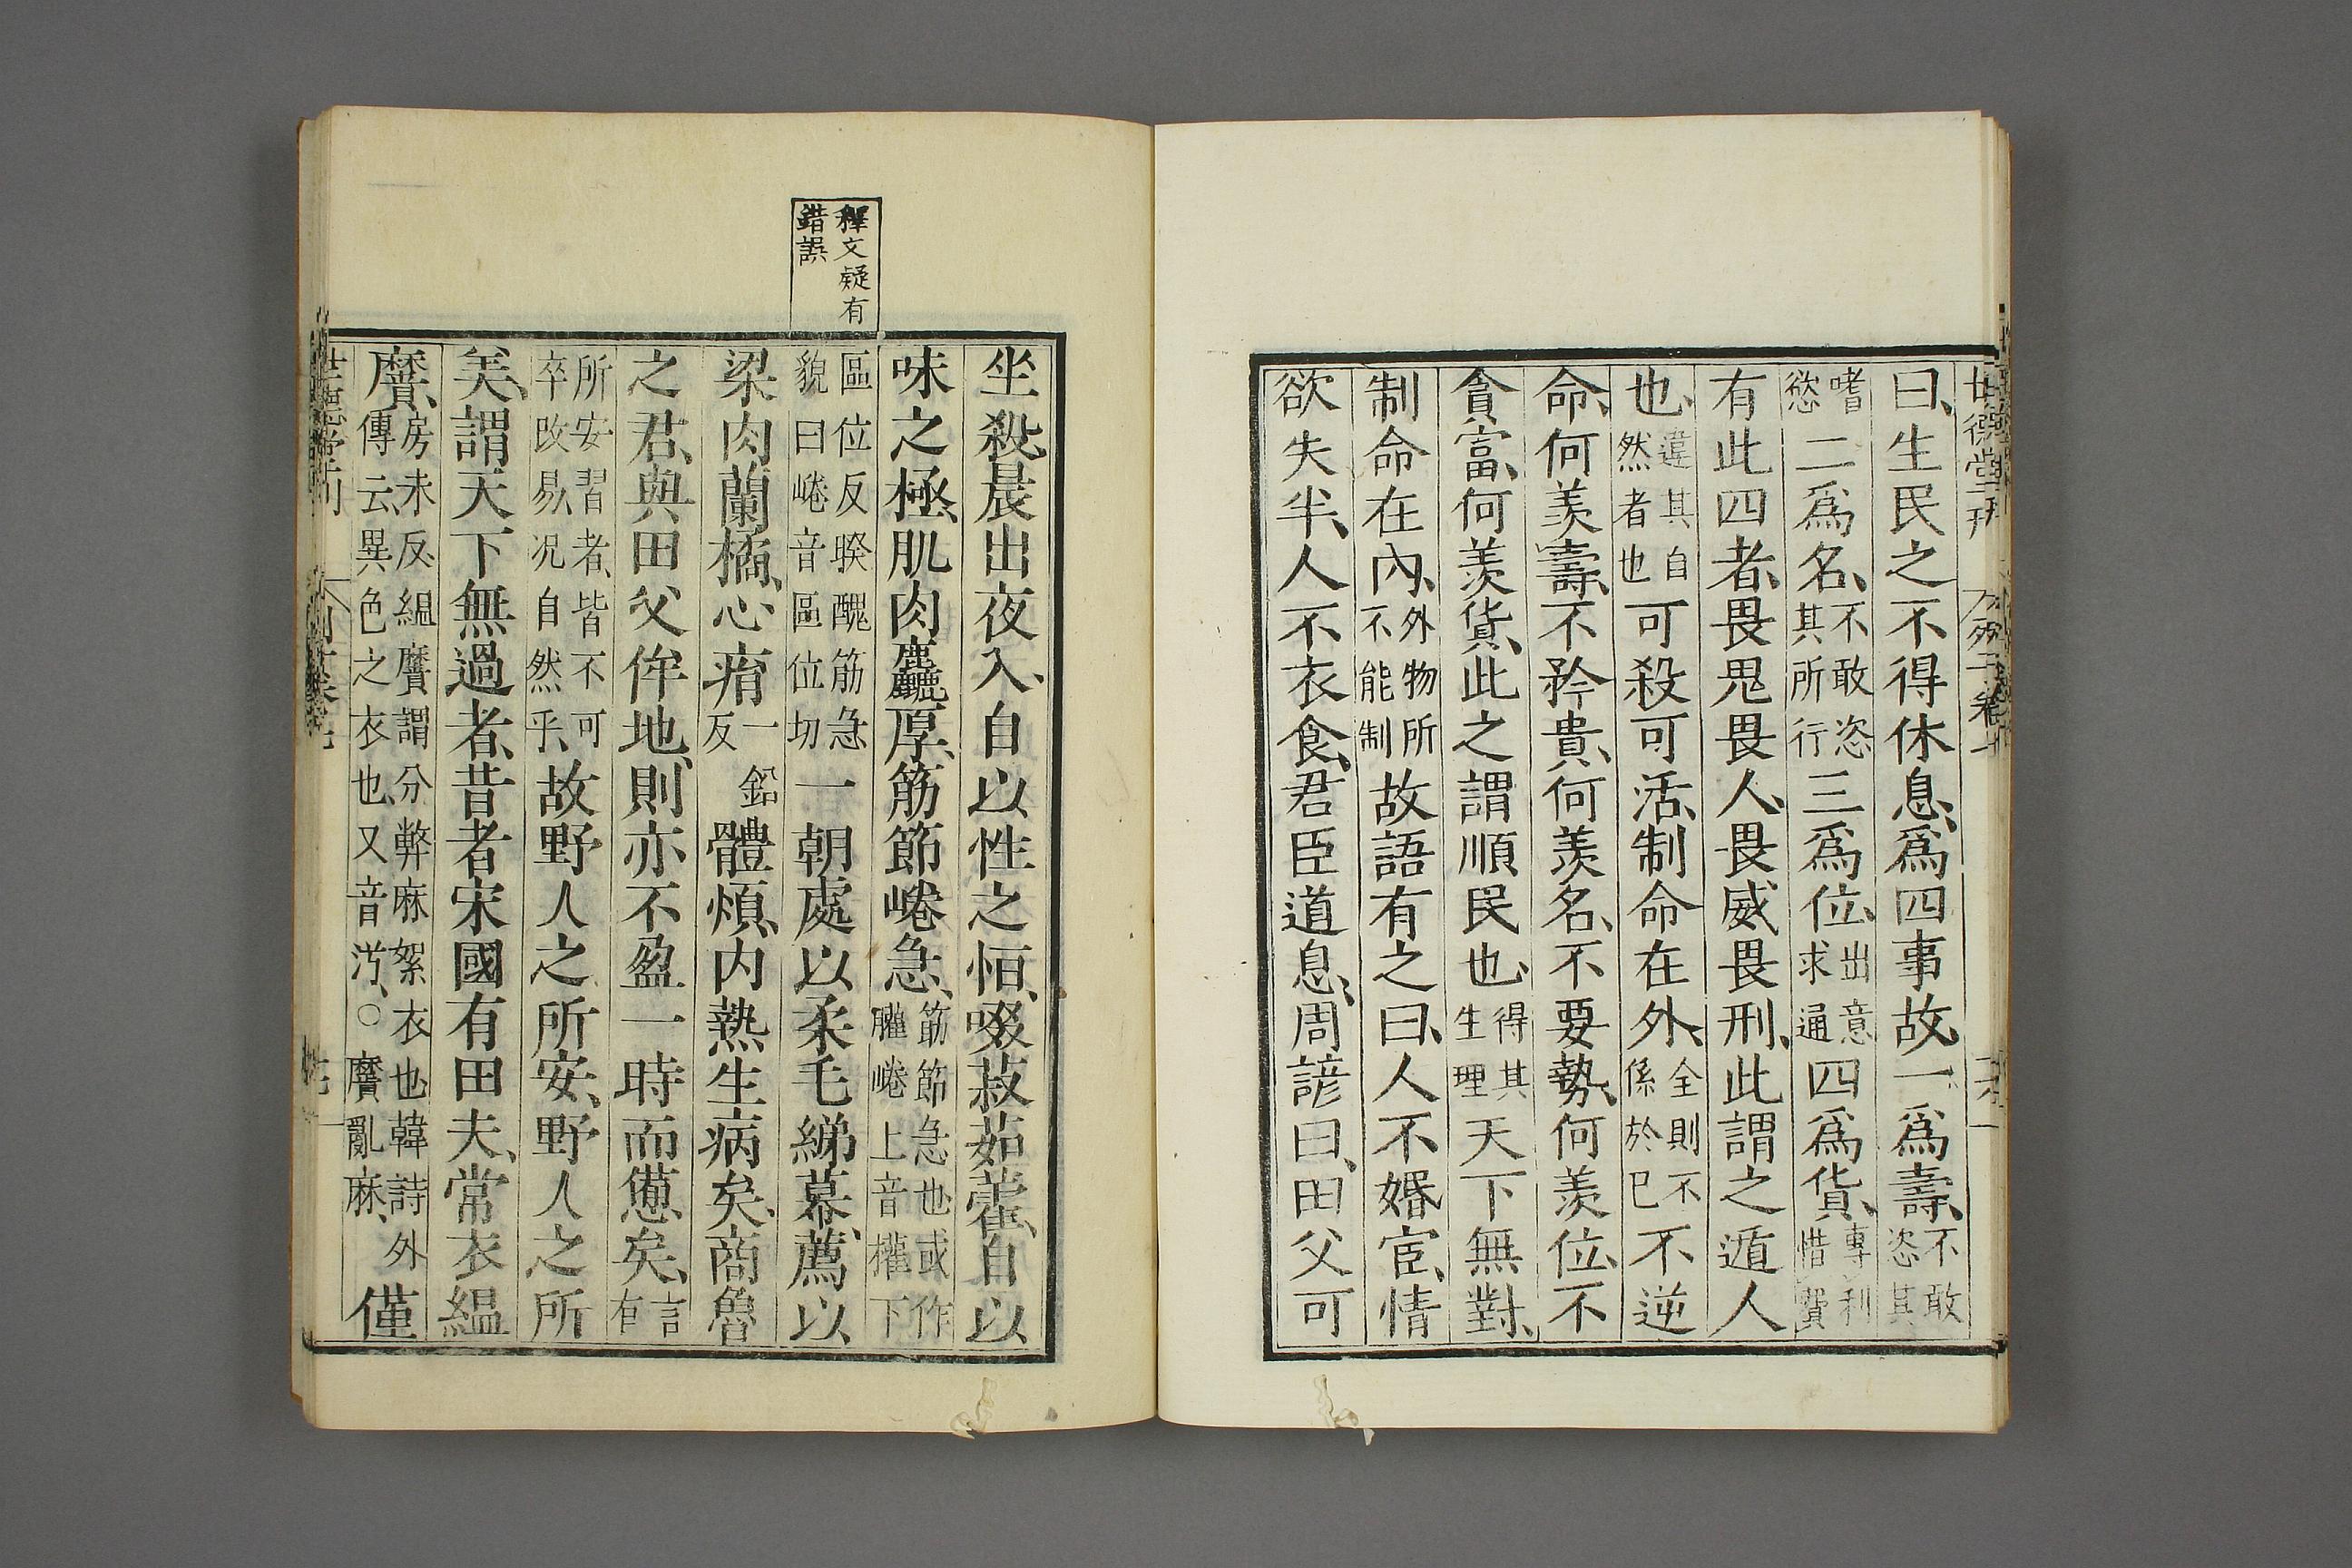 世德堂刊
曰、生民之不得休息、爲四事故、一爲壽、不敢恣其
嗜慾二爲名、不敢恣其所行三爲位、出意求通四爲貨、專利惜費
有此四者、畏鬼畏人、畏威畏刑、此謂之遁人
也、違其自然者也可殺可活、制命在外、全則不係於己不逆
命、何羨壽、不矜貴、何羨名、不要勢、何羨位、不
貪富、何羨貨、此之謂順民也、得其生理天下無對、
制命在內、外物所不能制故語有之曰、人不婚宦、情
欲失半、人不衣食、君臣道息、周諺曰、田父可
釋文疑有
錯誤
坐殺、晨出夜入、自以性之恒、啜菽茹藿、自以
味之極、肌肉麤厚、筋節㟡急、筋節急也或作䑏㟡上音權下
區位反睽醜筋急貌曰㟡音區位切一朝處以柔毛綈幕、薦以
梁肉蘭橘、心㾓一鉛反體煩、内熱生病矣、商魯
之君、與田父侔地、則亦不盈一時而憊矣、言有
所安習者、皆不可卒改易、况自然乎、故野人之所安、野人之所
美、謂天下無過者、昔者宋國有田夫、常衣縕
黂、房未反縕黂謂分弊麻絮衣也韓詩外傳云異色之衣也、又音汾、○黂亂麻、僅